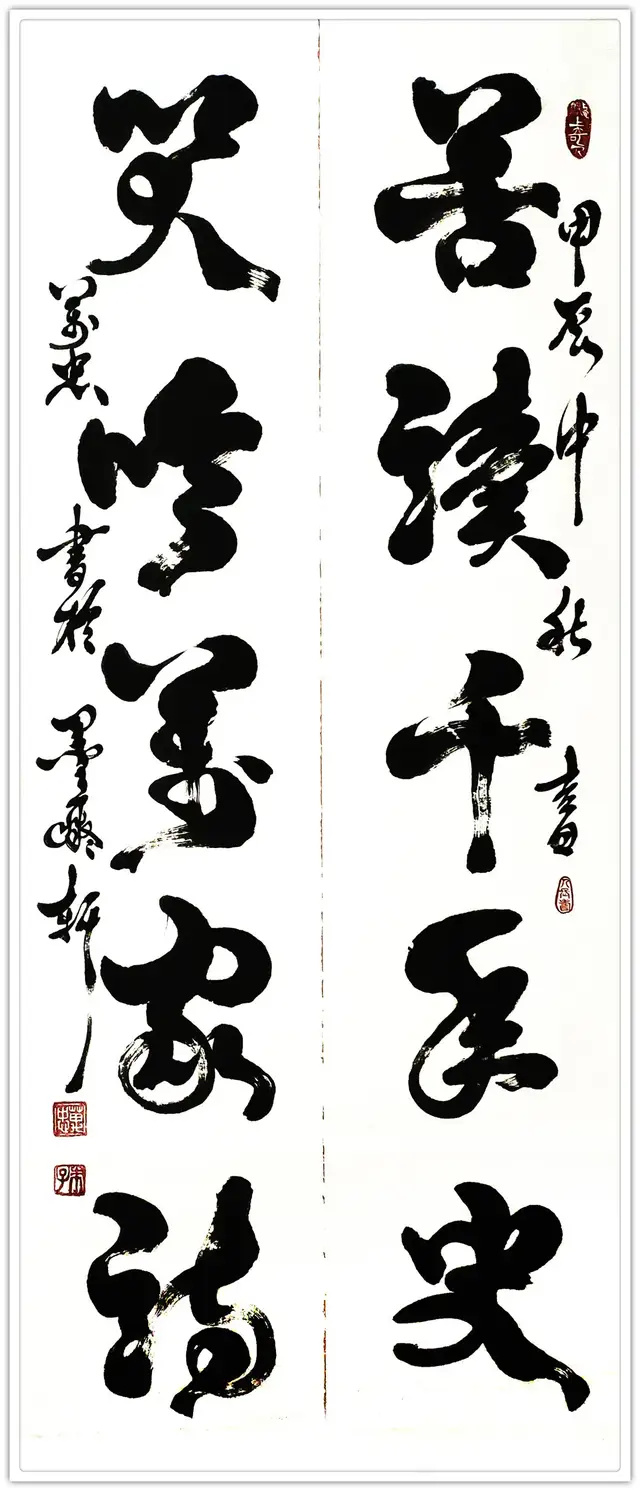 甲辰中秋
苦讀千年史
笑吟萬家詩
萬忠書於墨軒